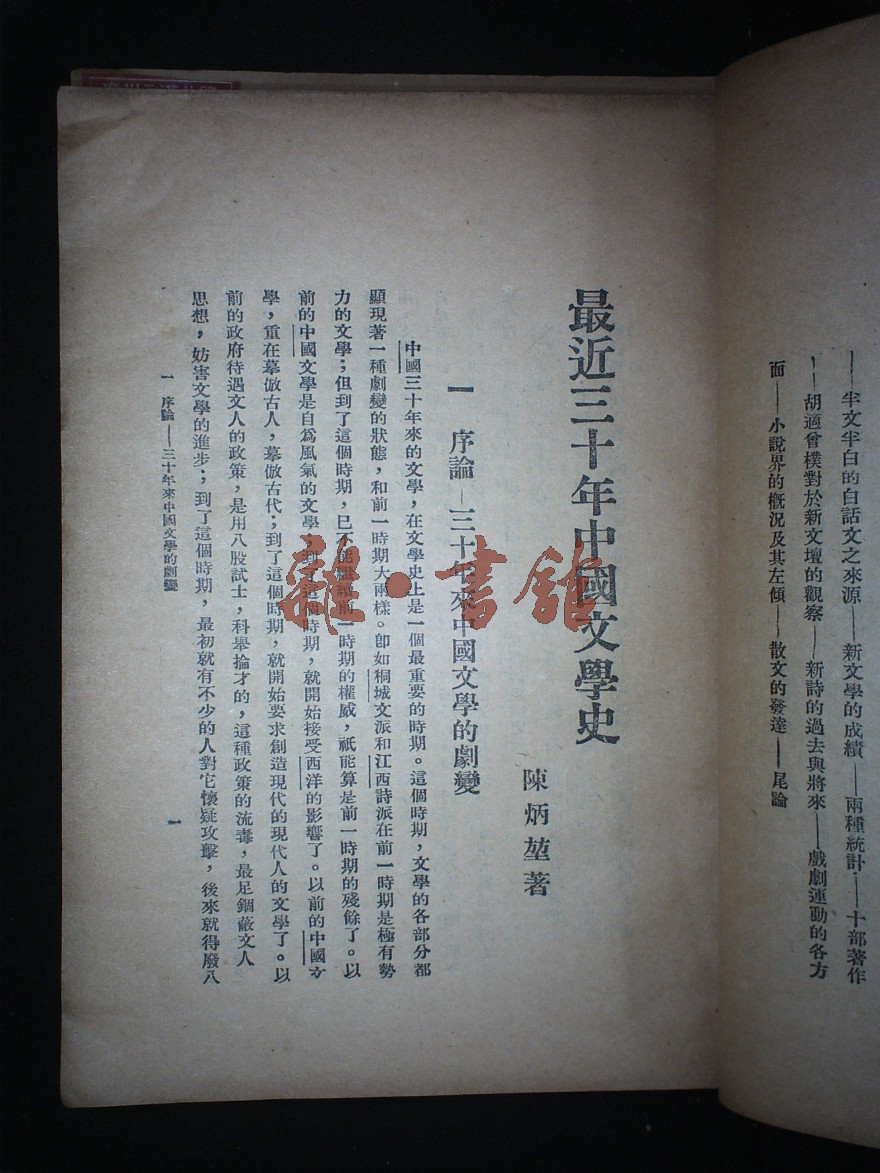 ——半文半白的白話文之來源——新文學的成績——兩種統計——十部著作
——胡適曾樸對於新文壇的觀察——新詩的過去與將來——戲劇運動的各方
面——小說界的概況及其左傾——散文的發達——尾論
最近三十年中國文學史
陳炳堃著
一 序論—三十年來中國文學的劇變
中國三十年來的文學，在文學史上是一個最重要的時期。這個時期，文學的各部分都
顯現著一種劇變的狀態，和前一時期大兩樣。卽如桐城文派和江西詩派在前一時期是極有勢
力的文學；但到了這個時期，已不能繼續前一時期的權威，祇能算是前一時期的殘餘了。以
前的中國文學是自爲風氣的文學，到了這個時期，就開始接受西洋的影響了。以前的中國文
學，重在摹倣古人，摹倣古代；到了這個時期，就開始要求創造現代的現代人的文學了。以
前的政府待遇文人的政策，是用八股試士，科舉掄才的，這種政策的流毒，最足錮蔽文人
思想，妨害文學的進步；到了這個時期，最初就有不少的人對它懷疑攻擊，後來就得廢八
一 序論——三十年來中國文學的劇變
一
龍·書館